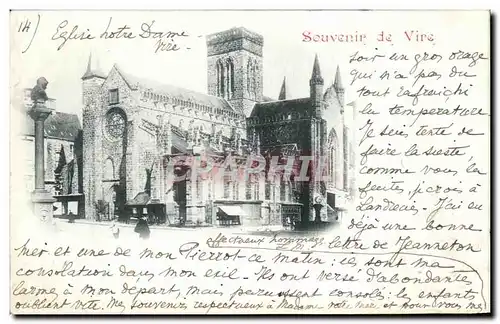 14)
Eglise Notre Dame
Vire
Souvenir de Vire
soir un gros orage
qui n'a pas du
tout rafraichi
la température
Je suis tentée de
faire la sieste
comme vous la
faites, je crois à
Landevic. J'ai eu
déjà une bonne
lettre de Jeanneton
hier et une de mon Pierrot ce matin: ce sont ma
consolation dans mon exil. Ils ont versé d'abondantes
larmes à mon départ, mais paraissent consolés: les enfants
oublient vite. Mes souvenirs respectueux à Madame votre mère et pour vous mes
affectueux hommages
CPARAMA